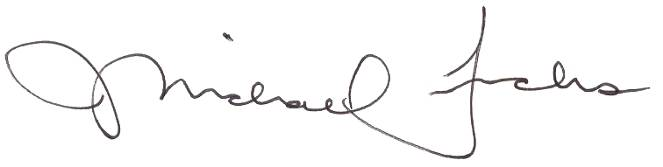 Michael Fuchs